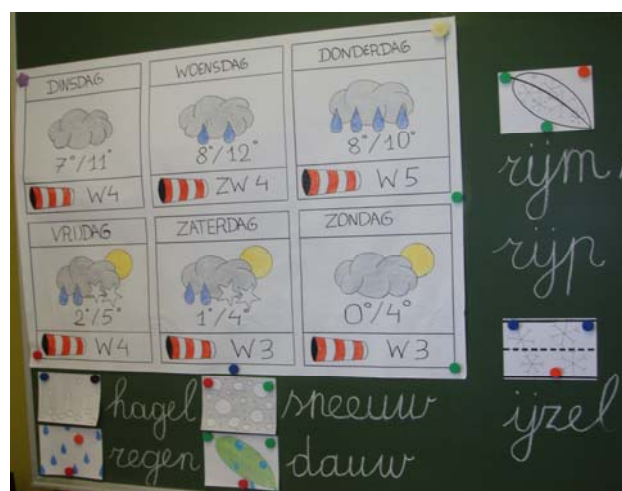 DINSDAG
7°/11°
W4
WOENSDAG
8°/12°
ZW 4
DONDERDAG
8°/10°
W 5
VRIJDAG
2°/5°
W4
ZATERDAG
1°/4°
W 3
ZONDAG
0°/4°
W 3
rijm
rijp
ijzel
hagel
sneeuw
regen
dauw